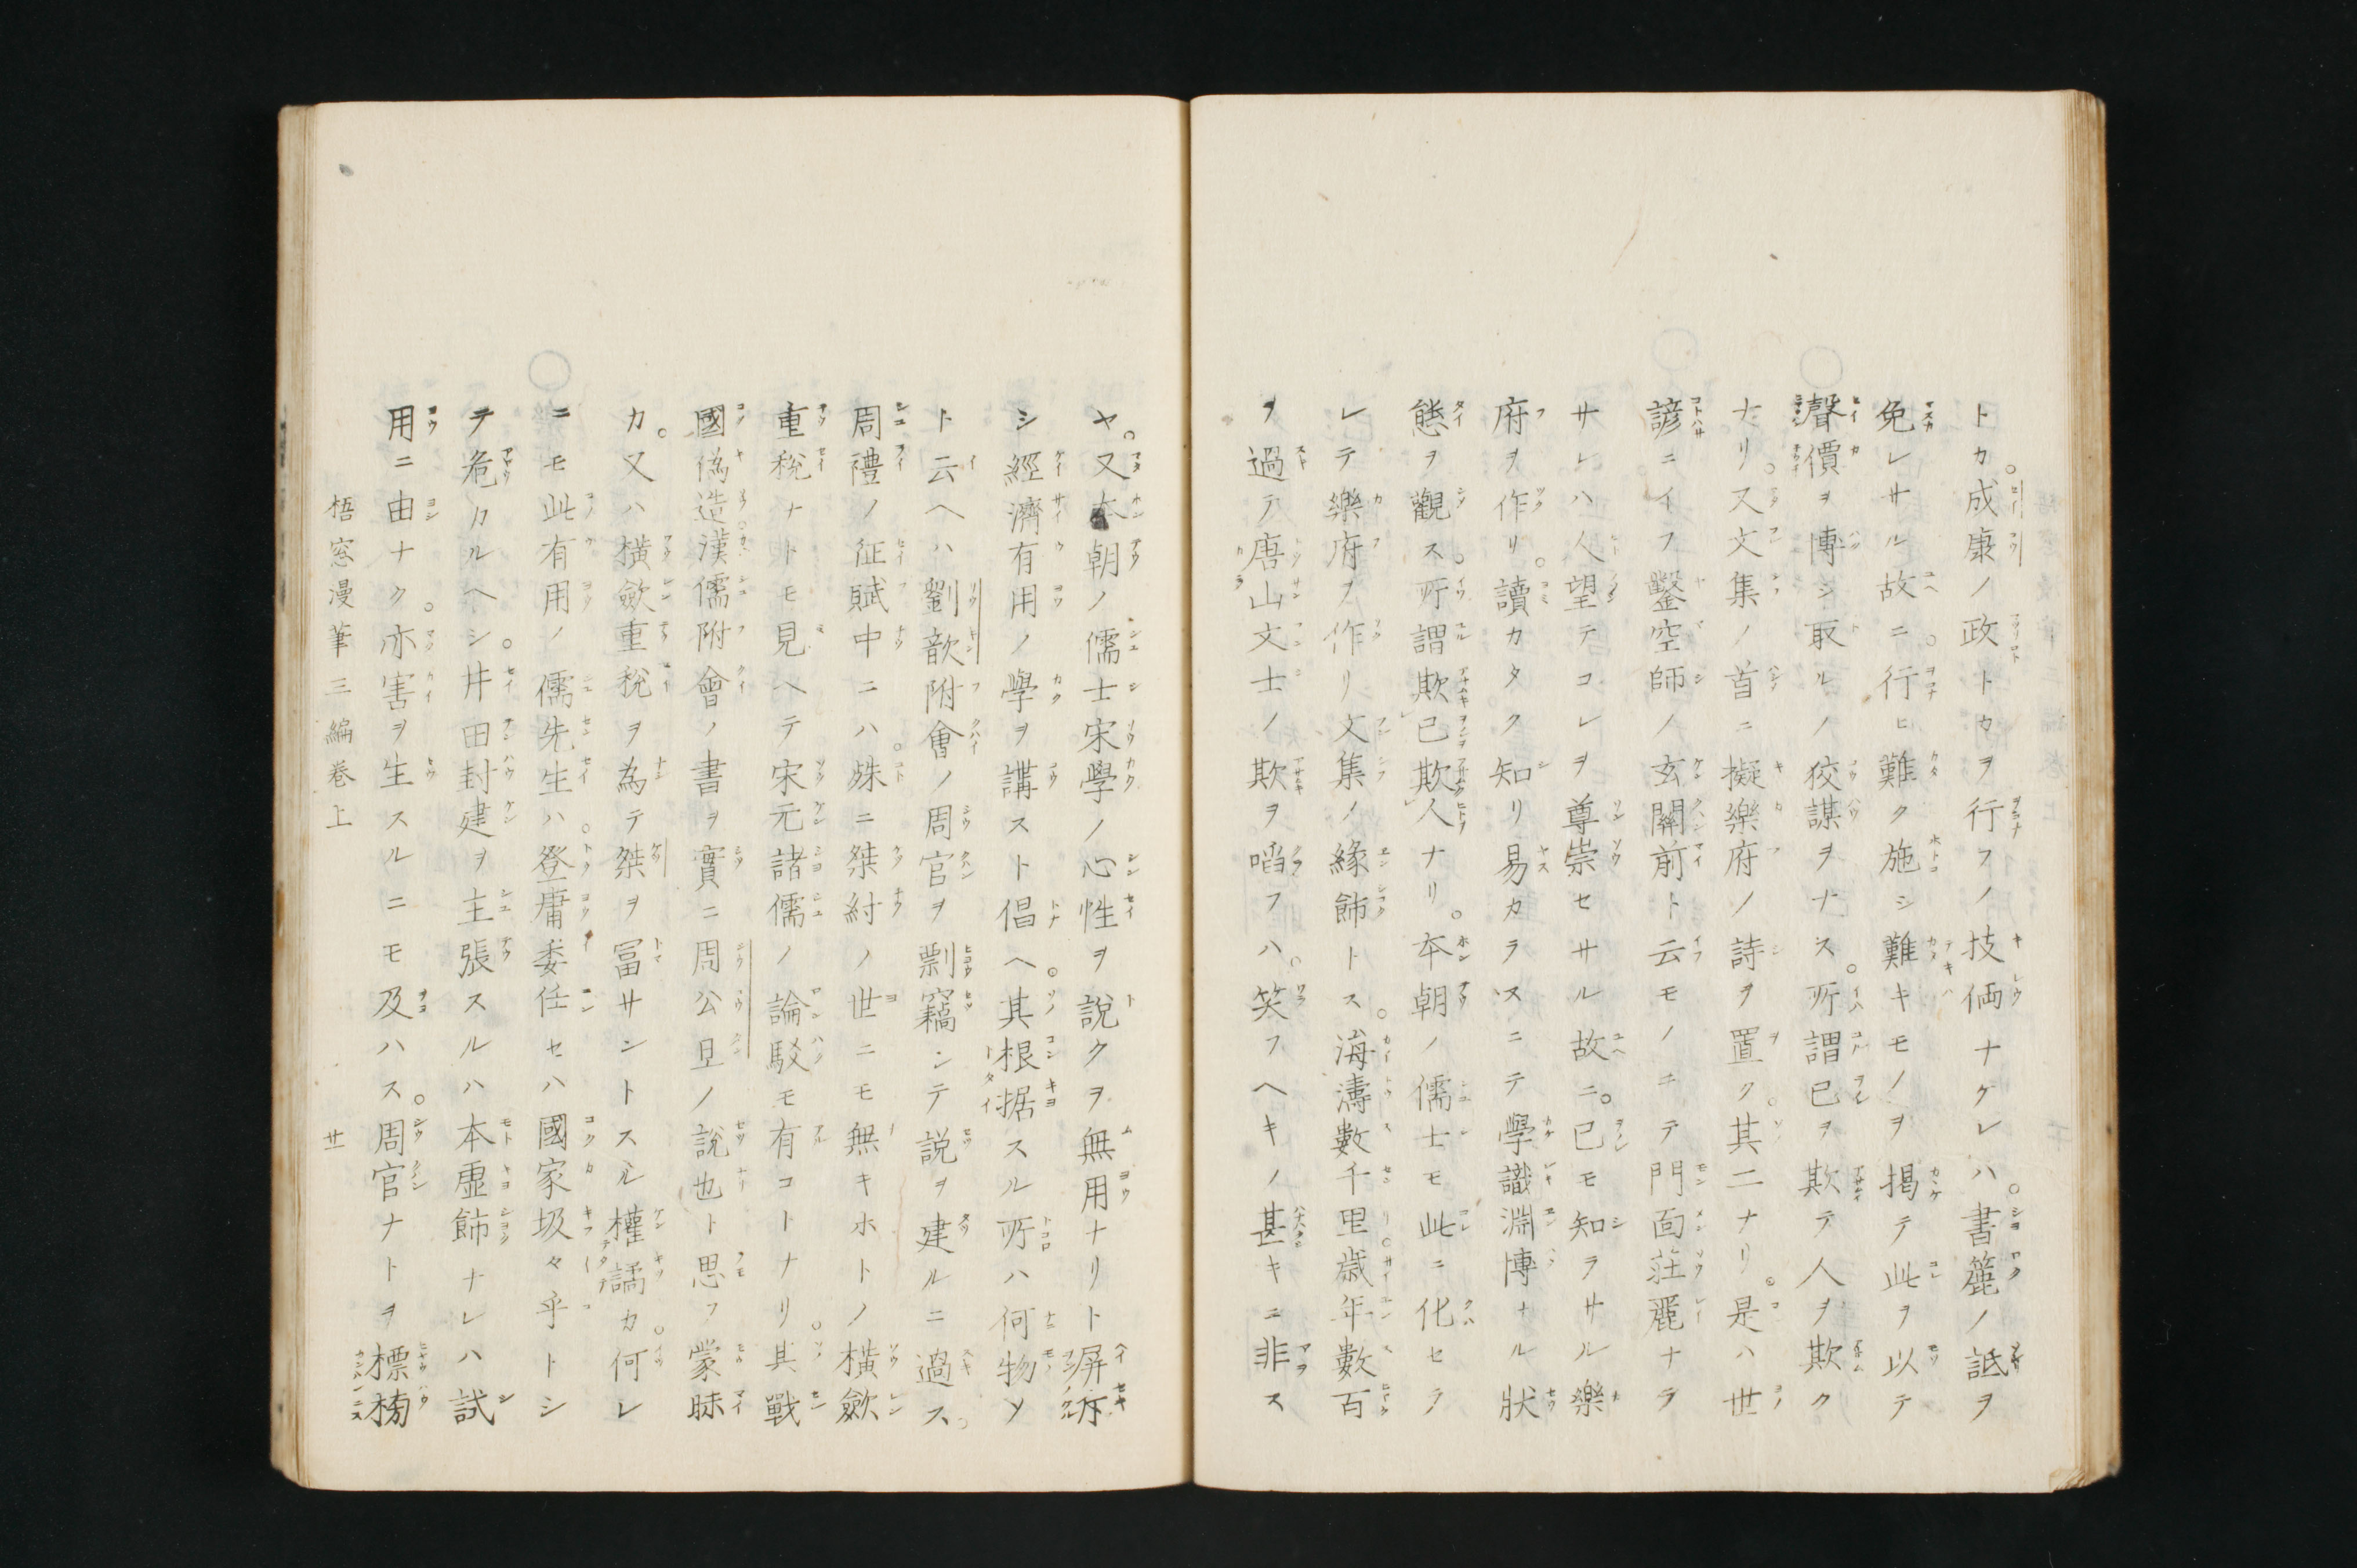 トカ。成康ノ政トカヲ行フノ技倆ナケレハ。書簏ノ詆ヲ
免レサル故ニ。行ヒ難ク施シ難キモノヲ掲テ此ヲ以テ
聲價ヲ博シ取ルノ狡謀ヲナス。所謂已ヲ欺テ人ヲ欺ク
ナリ。又文集ノ首ニ擬樂府ノ詩ヲ置ク。其二ナリ。是ハ世
諺ニイフ鑿空師ノ玄關前ト云モノニテ門面莊麗ナラ
サレハ人望テコレヲ尊崇セサル故ニ。已モ知ラサル樂
府ヲ作リ。讀カタク知リ易カラスニテ學識淵博ナル狀
態ヲ觀ス。所謂欺已欺人ナリ。本朝ノ儒士モ此ニ化セラ
レテ樂府ヲ作リ文集ノ緣飾トス。海濤數千里歳年數百
ヲ過テ唐山文士ノ欺ヲ啗フハ。笑フヘキノ甚キニ非ス
ヤ。又本朝ノ儒士宋學ノ心性ヲ說クヲ無用ナリト屏斥
シ經濟有用ノ學ヲ講スト倡ヘ。其根据スル所ハ何物ソ
ト云ヘハ劉歆附會ノ周官ヲ剽竊シテ説ヲ建ルニ過ス。
周禮ノ征賦中ニハ。殊ニ桀紂ノ世ニモ無キホトノ橫斂
重税ナトモ見ヘテ宋元諸儒ノ論駁モ有コトナリ。其戰
國偽造漢儒附會ノ書ヲ實ニ周公旦ノ說也ト思フ蒙昧
カ。又ハ橫斂重税ヲ為テ桀ヲ冨サントスル權譎カ。何レ
ニモ此有用ノ儒先生ハ。登庸委任セハ國家圾々乎トシ
テ危カルヘシ。井田封建ヲ主張スルハ本虛飾ナレハ試
用ニ由ナク。亦害ヲ生スルニモ及ハス。周官ナトヲ標榜
梧窓漫筆三編巻上　廿一